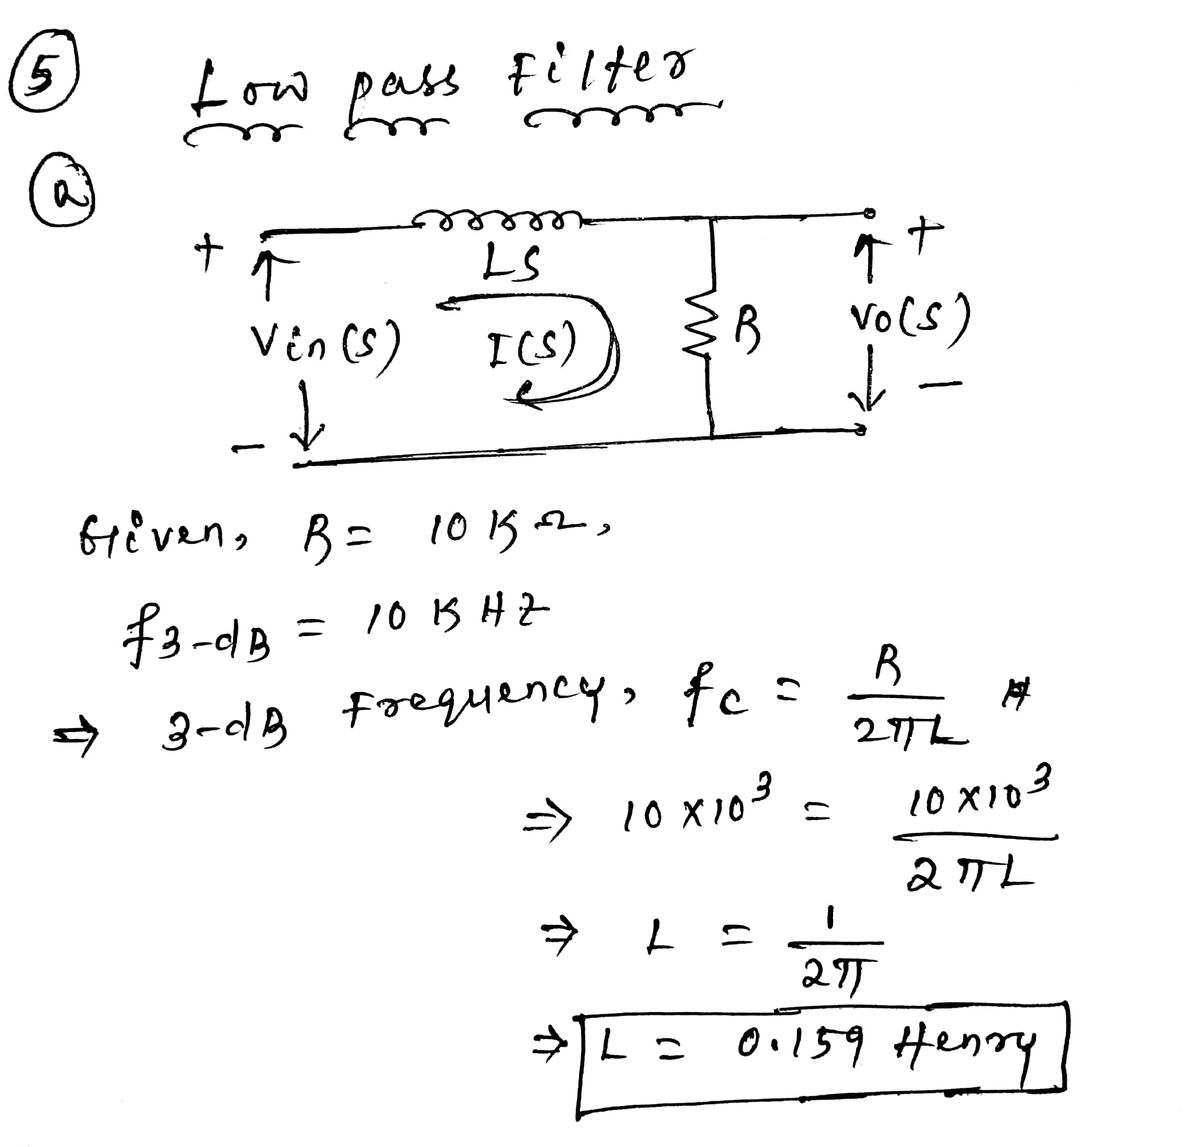 5 Low pass Filter
a
+ +
LS
Vin(S) I(S) R Vo(S)
- -
Given, R = 10 KΩ,
f3-dB = 10 KHZ
⇒ 3-dB Frequency, fc = R / 2πL
⇒ 10 × 10³ = 10 × 10³ / 2πL
⇒ L = 1 / 2π
⇒ L = 0.159 Henry